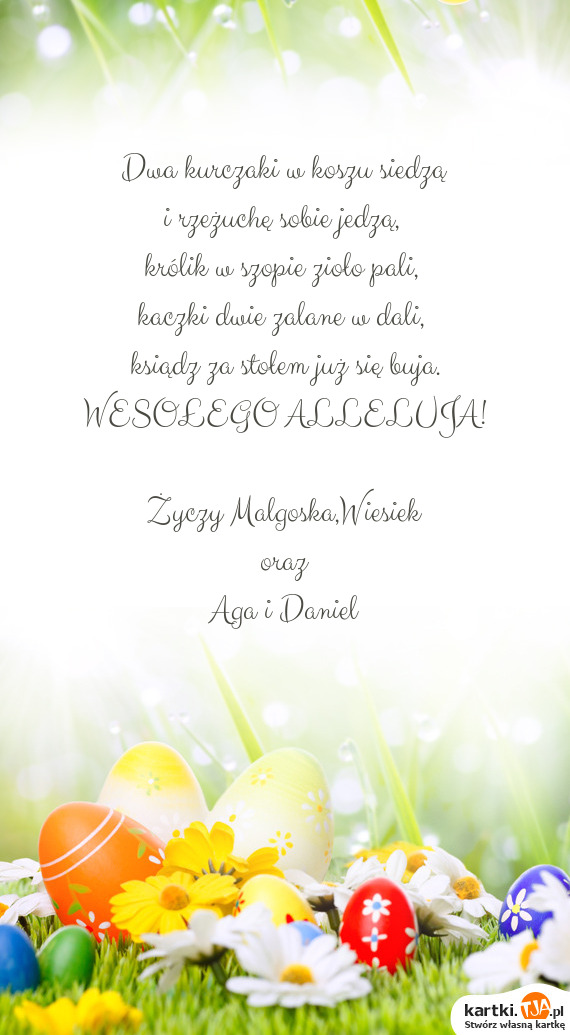 Dwa kurczaki w koszu siedzą
i rzeżuchę sobie jedzą,
królik w szopie zioło pali,
kaczki dwie zalane w dali,
ksiądz za stołem już się buja.
WESOŁEGO ALLELUJA!
Życzy Malgoska,Wiesiek
oraz
Aga i Daniel
kartki.TJA.pl
Stwórz własną kartkę